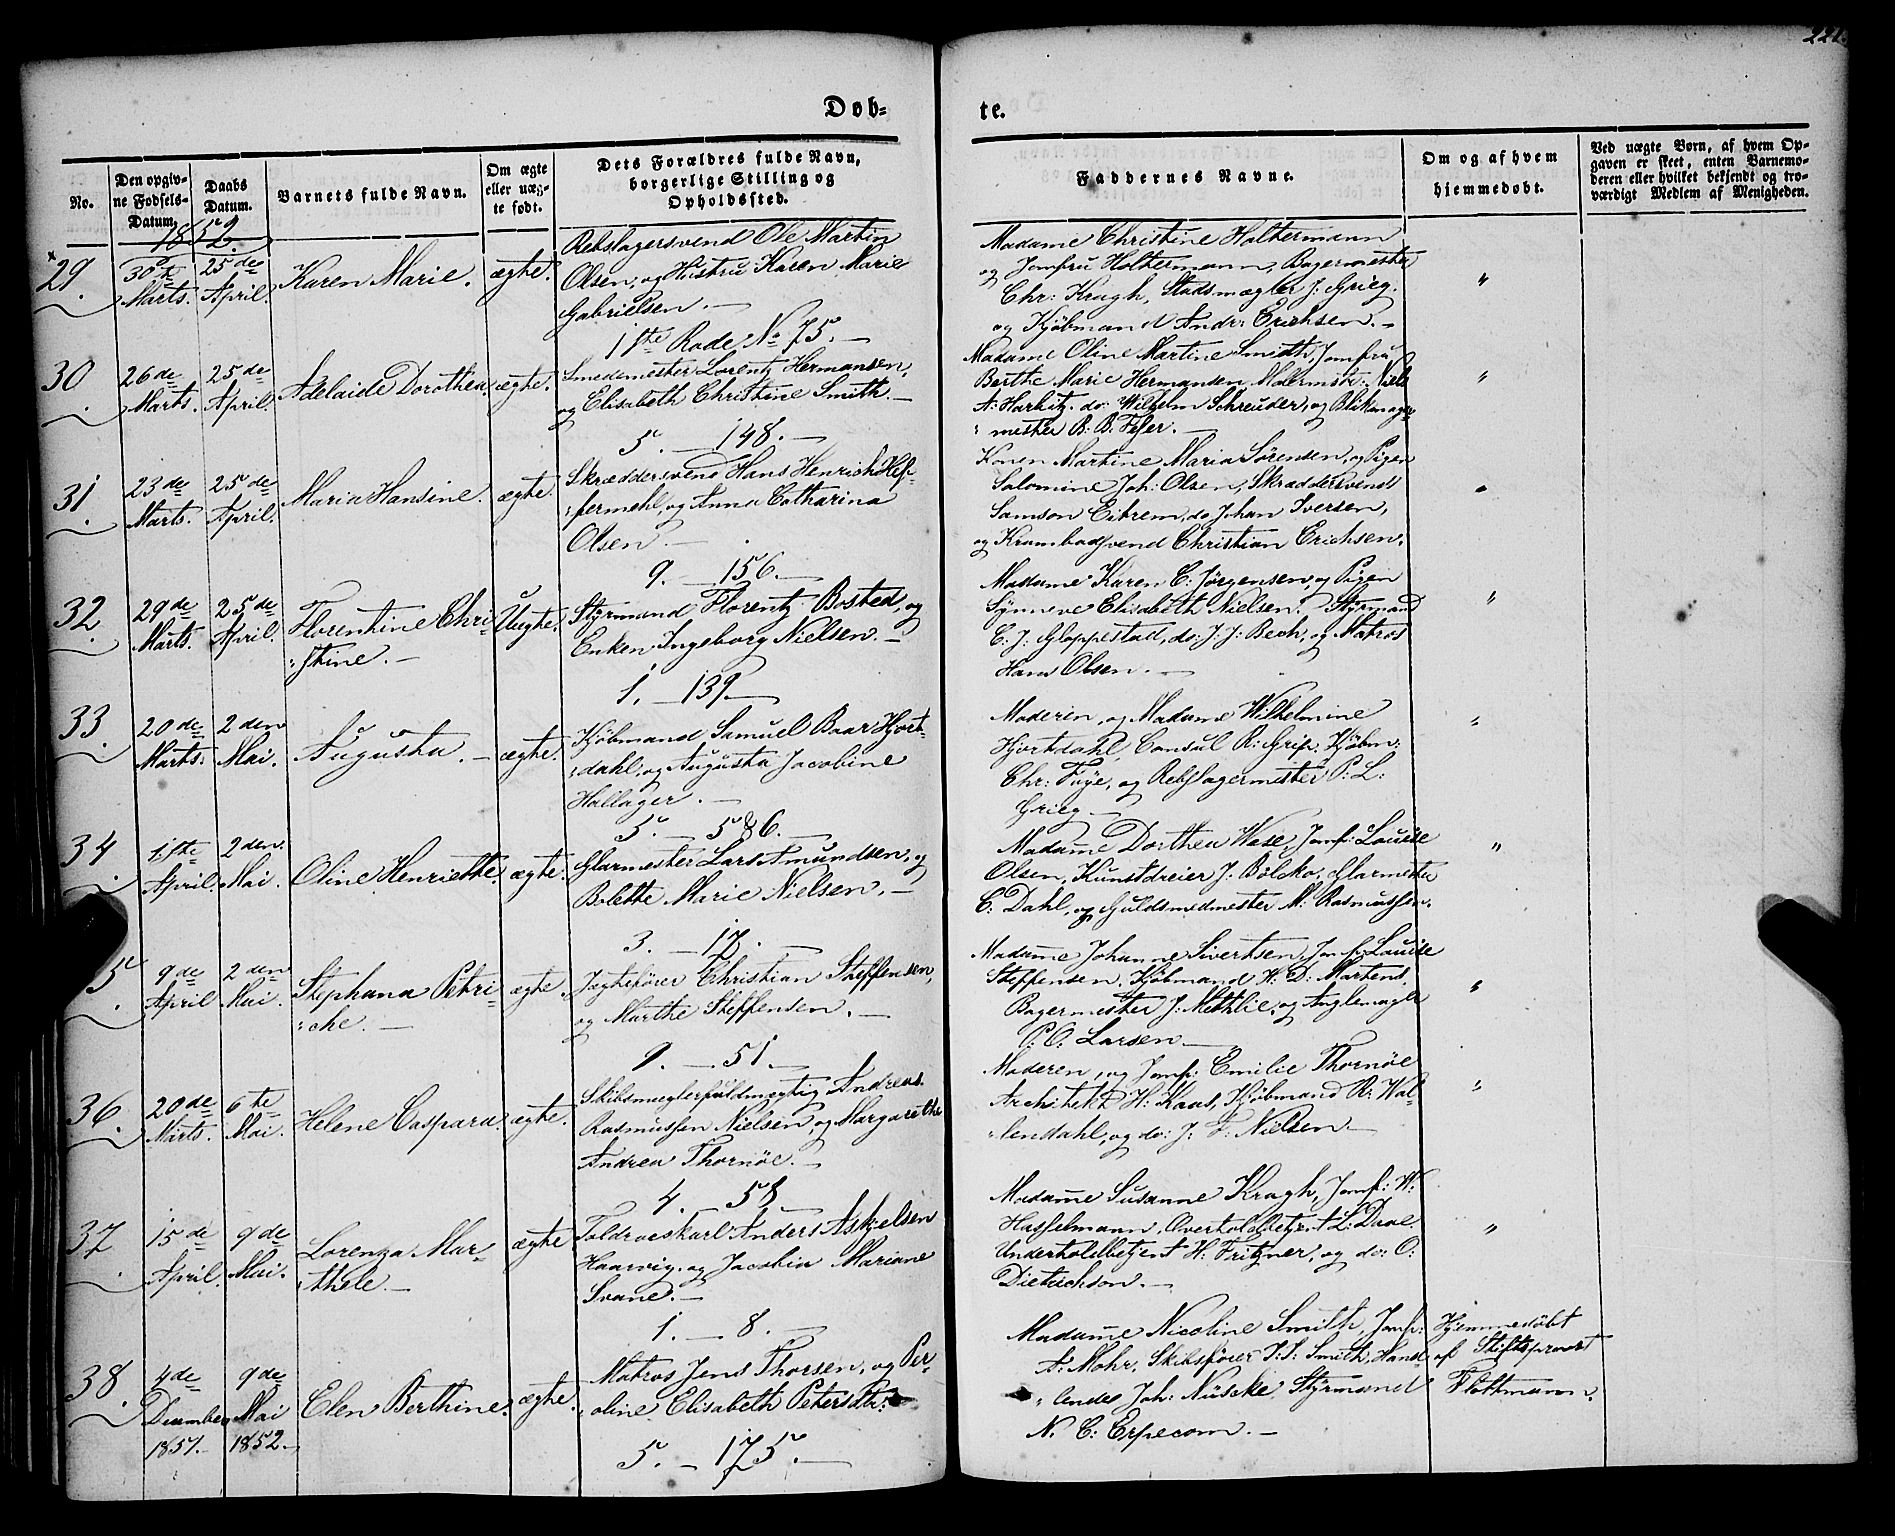 221.
Døb-
te.
No.
Den opgiv-
ne Fødsels-
Datum.
Daabs
Datum.
Barnets fulde Navn.
Om ægte
eller uæg-
te født.
Dets Forældres fulde Navn,
borgerlige Stilling og
Opholdssted.
Faddernes Navne.
Om og af hvem
hjemmedøbt.
Ved uægte Børn, af hvem Op-
gaven er skeet, enten Barnemo-
deren eller hvilket bekjendt og tro-
værdigt Medlem af Menigheden.
1852.
29.
30te
Marts.
25de
April.
Karen Marie.
ægte.
Rebslagersvend Ole Martin
Olsen, og Hustru Karen Marie
Gabrielsen. —
1ste Rode No 75. —
Madame Christine Holtermann
og Jomfru Holtermann, Bagermester
Chr: Krogh, Stadsmægler J: Grieg.
og Kjøbmand Andr: Erichsen. —
"
30.
26de
Marts.
25de
April.
Adelaide Dorothea.
ægte.
Smedmester Lorentz Hermansen,
og Elisabeth Christine Smith. —
5. — 148. —
Madame Oline Martine Smidth, Jomfru
Berthe Marie Hermansen, Malermstr: Niels
A: Harbitz. do: Wilhelm Schreuder, og Blikmager
: mester B: B. Feser. —
"
31.
23de
Marts.
25de
April.
Maria Hansine.
ægte.
Skræddersvend Hans Henrich Hef-
:fermehl, og Anna Catharina
Olsen. —
9. — 156. —
Konen Martine Maria Sørensen, og Pigen
Salomine Joh: Olsen, Skræddersvend
Samson Eitrem, do Johan Iversen,
og Krambodsvend Christian Erichsen.
"
32.
29de
Marts.
25de
April.
Florentine Chri-
:stine. —
Uægte.
Styrmand Florentz Bosted, og
Enken Ingeborg Nielsen. —
1. — 139. —
Madame Karen C: Jørgensen, og Pigen
Synneve Elisabeth Nielsen. Styrmand
C: J: Gloppestad, do: J. J: Bech, og Matros
Hans Olsen. —
"
33.
20de
Marts.
2den
Mai.
Augusta. —
ægte.
Kjøbmand Samuel Baar Hjort-
:dahl, og Augusta Jacobine
Hallager. —
5. — 586. —
Moderen, og Madame Wilhelmine
Hjortdahl, Consul R: Grip, Kjøbm:
Chr: Faye, og Rebslagermester P: L:
Grieg —
"
34.
1ste
April.
2den
Mai.
Oline Henriette.
ægte.
Glarmester Lars Amundsen, og
Bolette Marie Nielsen. —
3. — 17. —
Madame Dorthea Wase, Jomf: Louise
Olsen, Kunstdreier J: Bølcko, Glarmester
C: Dahl, og Guldsmedmester M: Rasmussen.
"
5.
9de
April
2den
Mai.
Stephana Petri-
:che. —
ægte
Jægtefører Christian Steffensen,
og Marthe Steffensen. —
9. — 51. —
Madame Johanne Sivertsen, Jomf: Louise
Steffensen, Kjøbmand H: D: Martens,
Bagermester J: Methlie, og Anglemager
P: O: Larsen —
"
36.
20de
Marts.
6te
Mai.
Helene Caspara.
ægte.
Skibsmæglerfuldmægtig Andreas
Rasmussen Nielsen, og Margarethe
Andrea Thornöe. —
4. 58
Moderen, og Jomf: Emilie Thornöe
Architekt H: Kaas, Kjøbmand R: Wal-
:lendahl, og do: J: F: Nielsen. —
"
37.
15de
April.
9de
Mai.
Lorenza Mar-
:thele. —
ægte
Toldroeskarl Anders Askjelsen
Haavig. og Jacobia Mariane
Svane. —
1. — 8. —
Madame Susanne Krogh, Jomf: W:
Hasselmann, Overtoldbetjent L: Daae,
Undertoldbetjent H: Fritzner, og do: O:
Dietrichson. —
"
38.
4de
December
1851.
9de
Mai
1852.
Elen Berthine.
ægte.
Matros Jens Thorsen, og Per-
:oline Elisabeth Petersdtr:
5. — 175. —
Madame Nicoline Smith, Jomf:
A: Mohr, Skibsfører J: S: Smith, Hand-
: lende Joh: Nüscke, Styrmand
N: C: Erpecom. —
Hjemmedøbt
af Stiftsprovst
Flottmann.